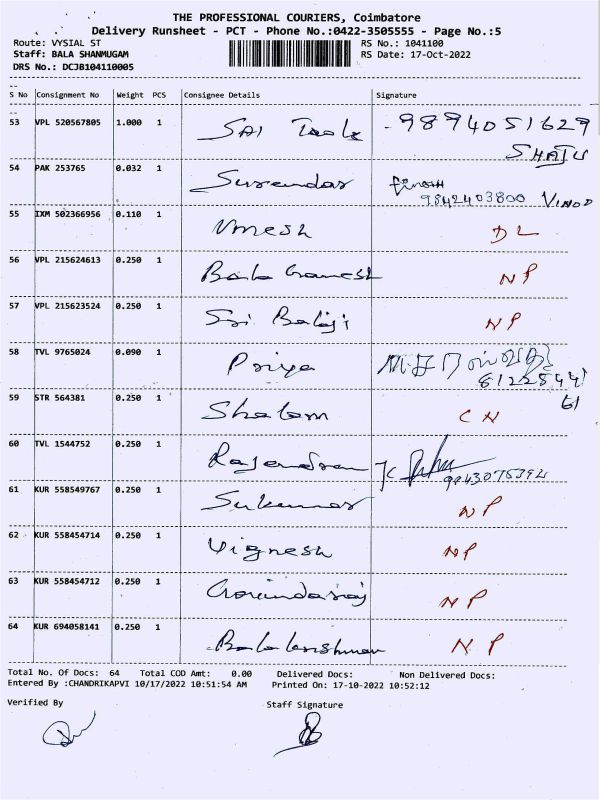 THE PROFESSIONAL COURIERS, Coimbatore
Delivery Runsheet - PCT - Phone No.:0422-3505555 - Page No.:5
Route: VYSIAL ST RS No.: 1041100
Staff: BALA SHANMUGAM RS Date: 17-Oct-2022
DRS No.: DCJB104110005
S No Consignment No Weight PCS Consignee Details Signature
53 VPL 520567805 1.000 1 SAI Tools 9894051629
SHAJU
54 PAK 253765 0.032 1 Surendar
9842403800 VINOD
55 IXM 502366956 0.110 1 Umesh DL
56 VPL 215624613 0.250 1 Bala Ganesh NP
57 VPL 215623524 0.250 1 Sri Balaji NP
58 TVL 9765024 0.090 1 Priya
59 STR 564381 0.250 1 Shalom CN
60 TVL 1544752 0.250 1 Rajendran
9943075392
61 KUR 558549767 0.250 1 Sukumar NP
62 KUR 558454714 0.250 1 Vignesh NP
63 KUR 558454712 0.250 1 Govindaraj NP
64 KUR 694058141 0.250 1 Balakrishnan NP
Total No. Of Docs: 64 Total COD Amt: 0.00 Delivered Docs: Non Delivered Docs:
Entered By :CHANDRIKAPVI 10/17/2022 10:51:54 AM Printed On: 17-10-2022 10:52:12
Verified By Staff Signature